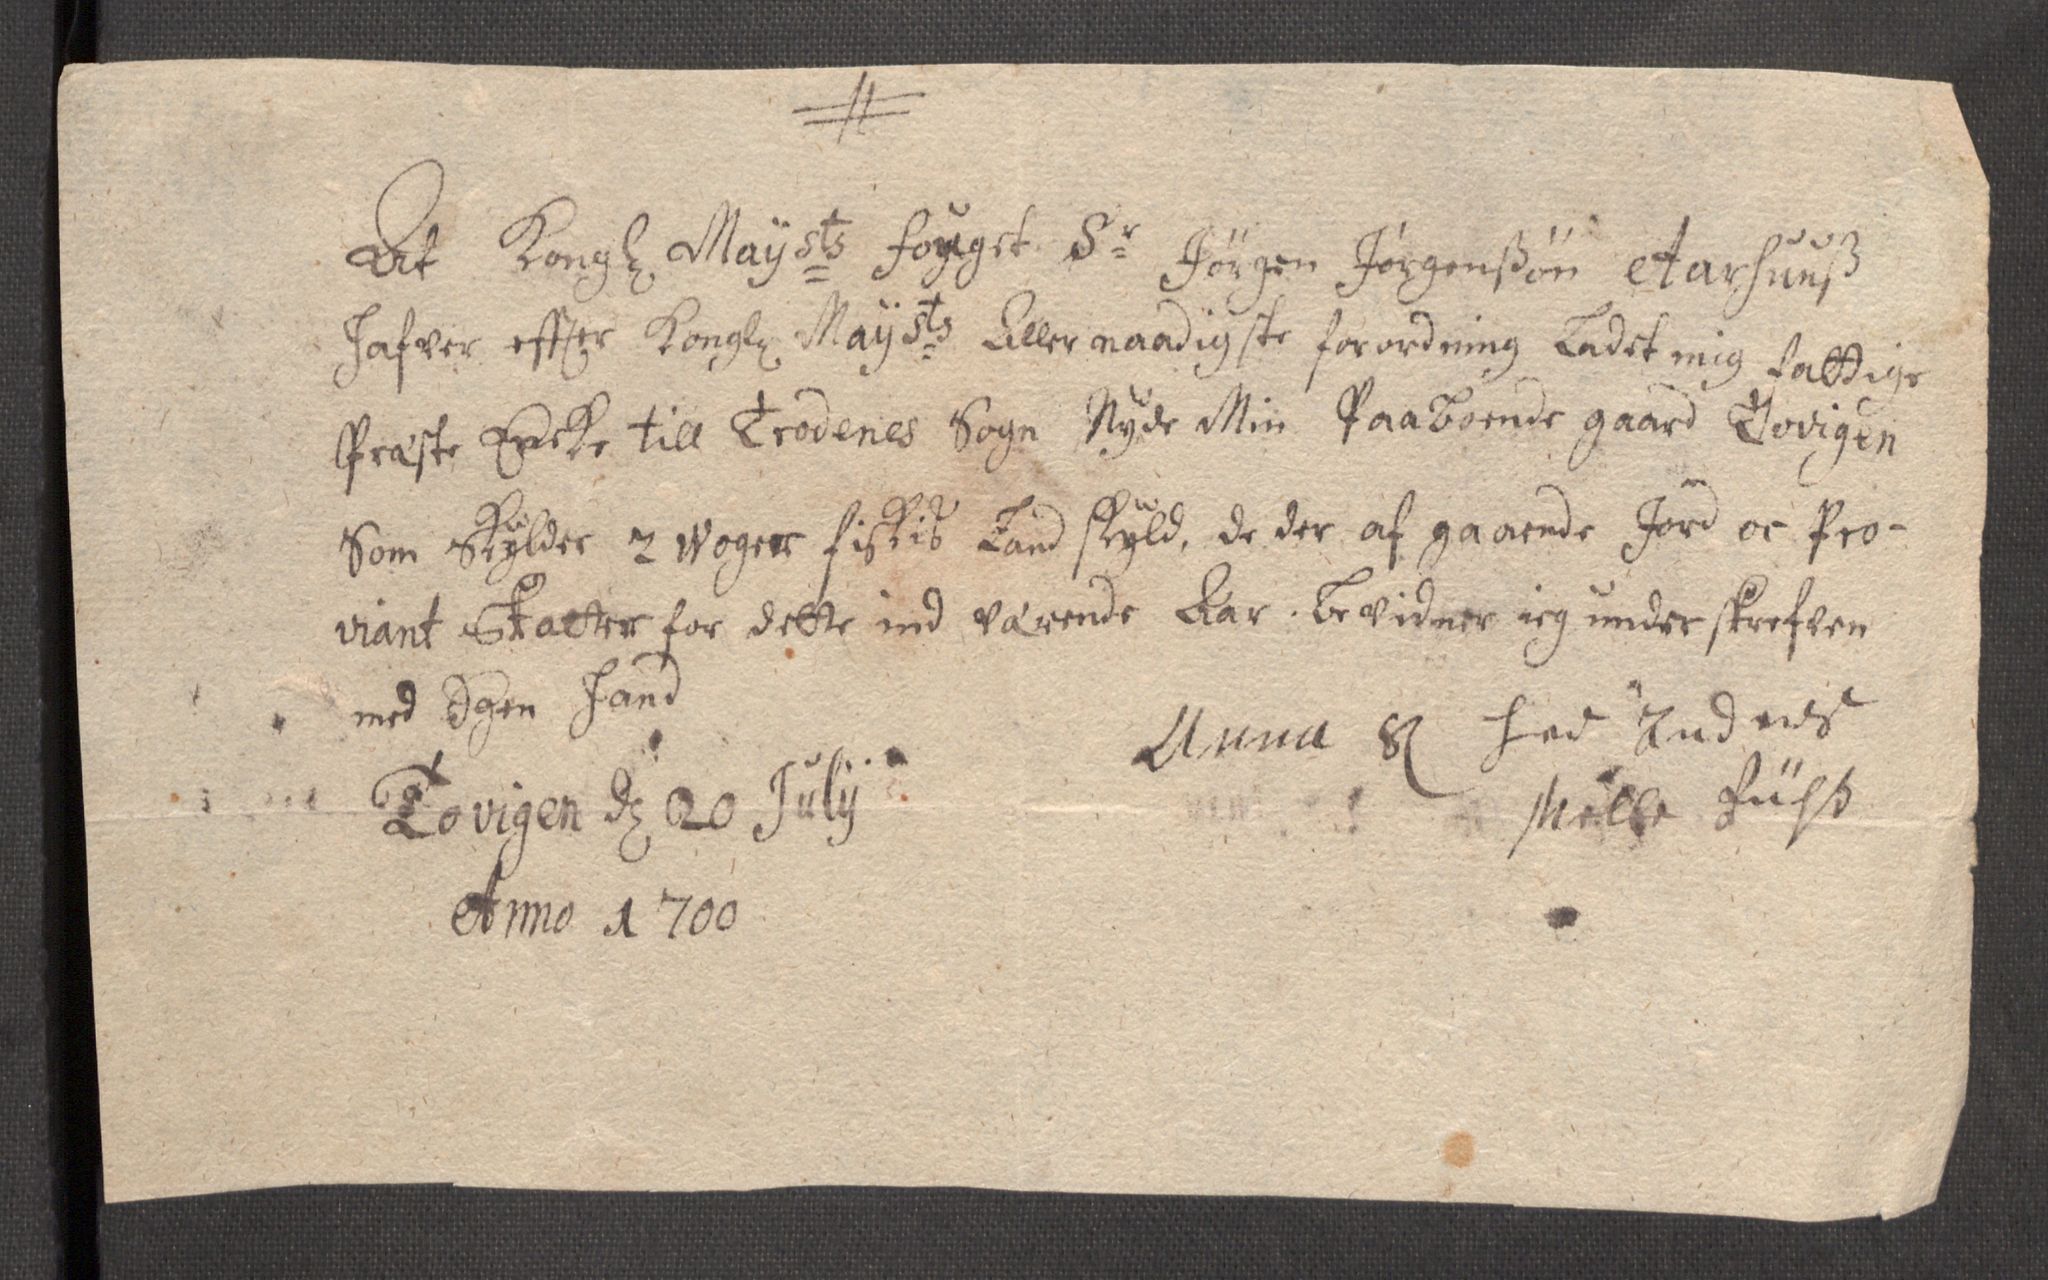 At Kongl Maÿsts fouget Sr Jörgen Jörgenßön Aarhuuß
hafver effter Kongl Maÿsts Aller naadigste forordning Ladet mig fattige
Præste Encke till Trodenes Sogn Nyde Min Paaboende gaard Tovigen
Som Skylder 2 Woger fiskis Land skyld, de der af gaaende Jord oc Pro-
viant Skatter for dette ind værende Aar. Bevidner ieg underskrefven
med Egen Hand
Tovigen dz 20 Julÿ
Anno 1700
Anna Sl hed